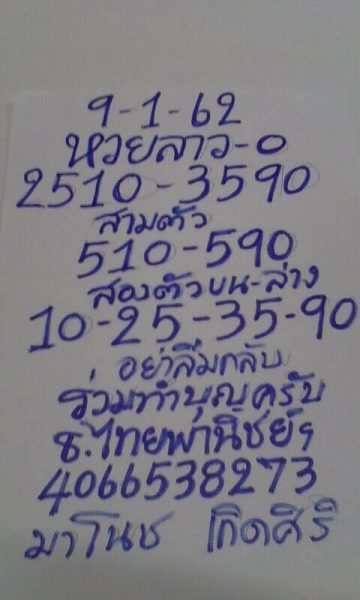 9-1-62
หวยลาว-0
2510-3590
สามตัว
510-590
สองตัวบน-ล่าง
10-25-35-90
อย่าลืมกลับ
ร่วมทำบุญครับ
ธ.ไทยพานิชย์ฯ
4066538273
มาโนช เกิดศิริ